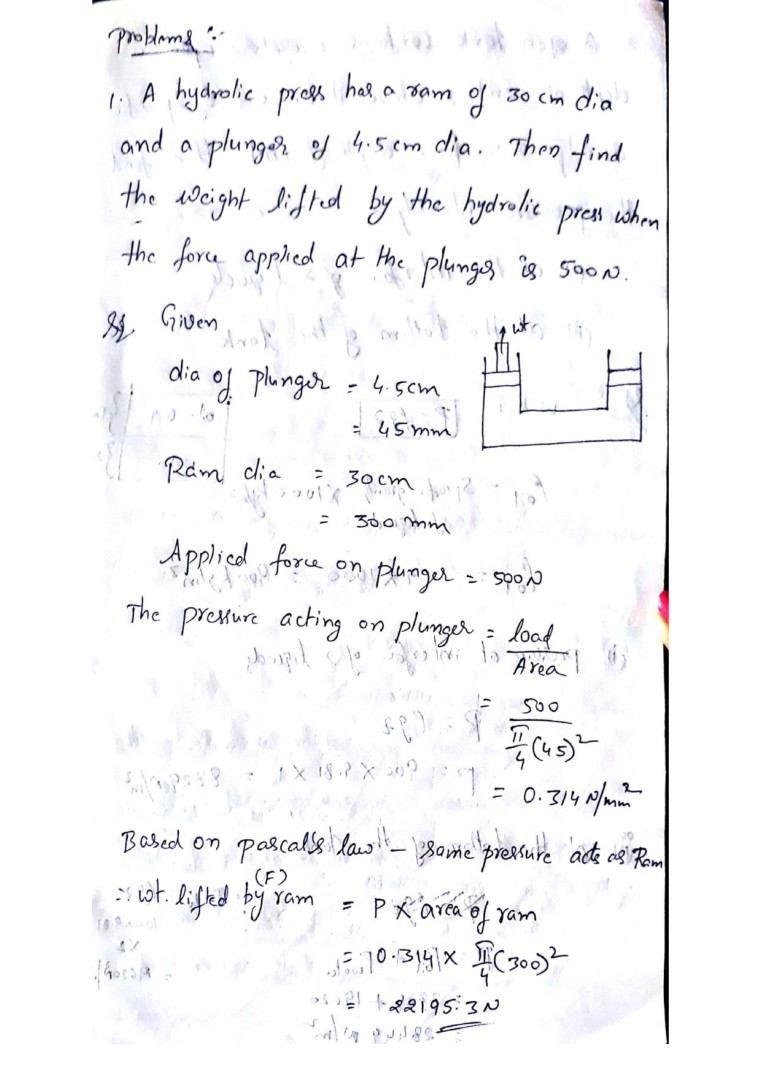 Problems :-
1. A hydrolic press has a ram of 30 cm dia
and a plunger of 4.5 cm dia. Then find
the weight lifted by the hydrolic press when
the force applied at the plunger is 500 N.
Sol. Given
wt
dia of plunger = 4.5cm
= 45 mm
Ram dia = 30 cm
= 300 mm
Applied force on plunger = 500 N
The pressure acting on plunger = load
Area
= 500
π/4 (45)²
= 0.314 N/mm²
Based on pascal's law - same pressure acts as Ram
∴ wt. lifted by ram (F) = P X area of ram
= 0.314 X π/4 (300)²
= 22195.3 N